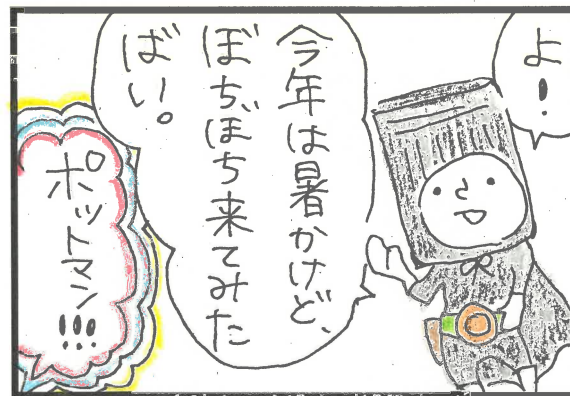 よ!
今年は暑かけど、
ぼちぼち来てみた
ばい。
ポットマン!!!